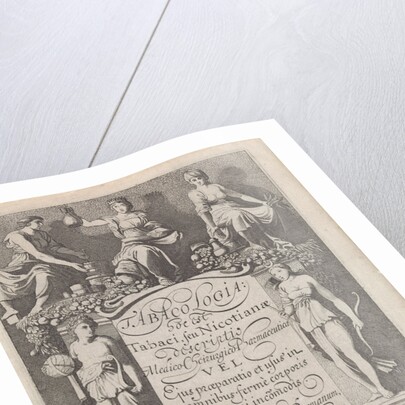 TABACOLOGIA:
hoc est
Tabaci, seu Nicotianæ
descriptio
Medico-Chirurgico-Pharmaceutica
VEL
Ejus præparatio et usus in
omnibus fermè corporis
incōmodis